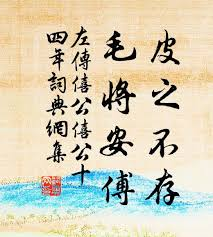 皮之不存
毛將安傅
左傳僖公僖公十
四年詞典網集